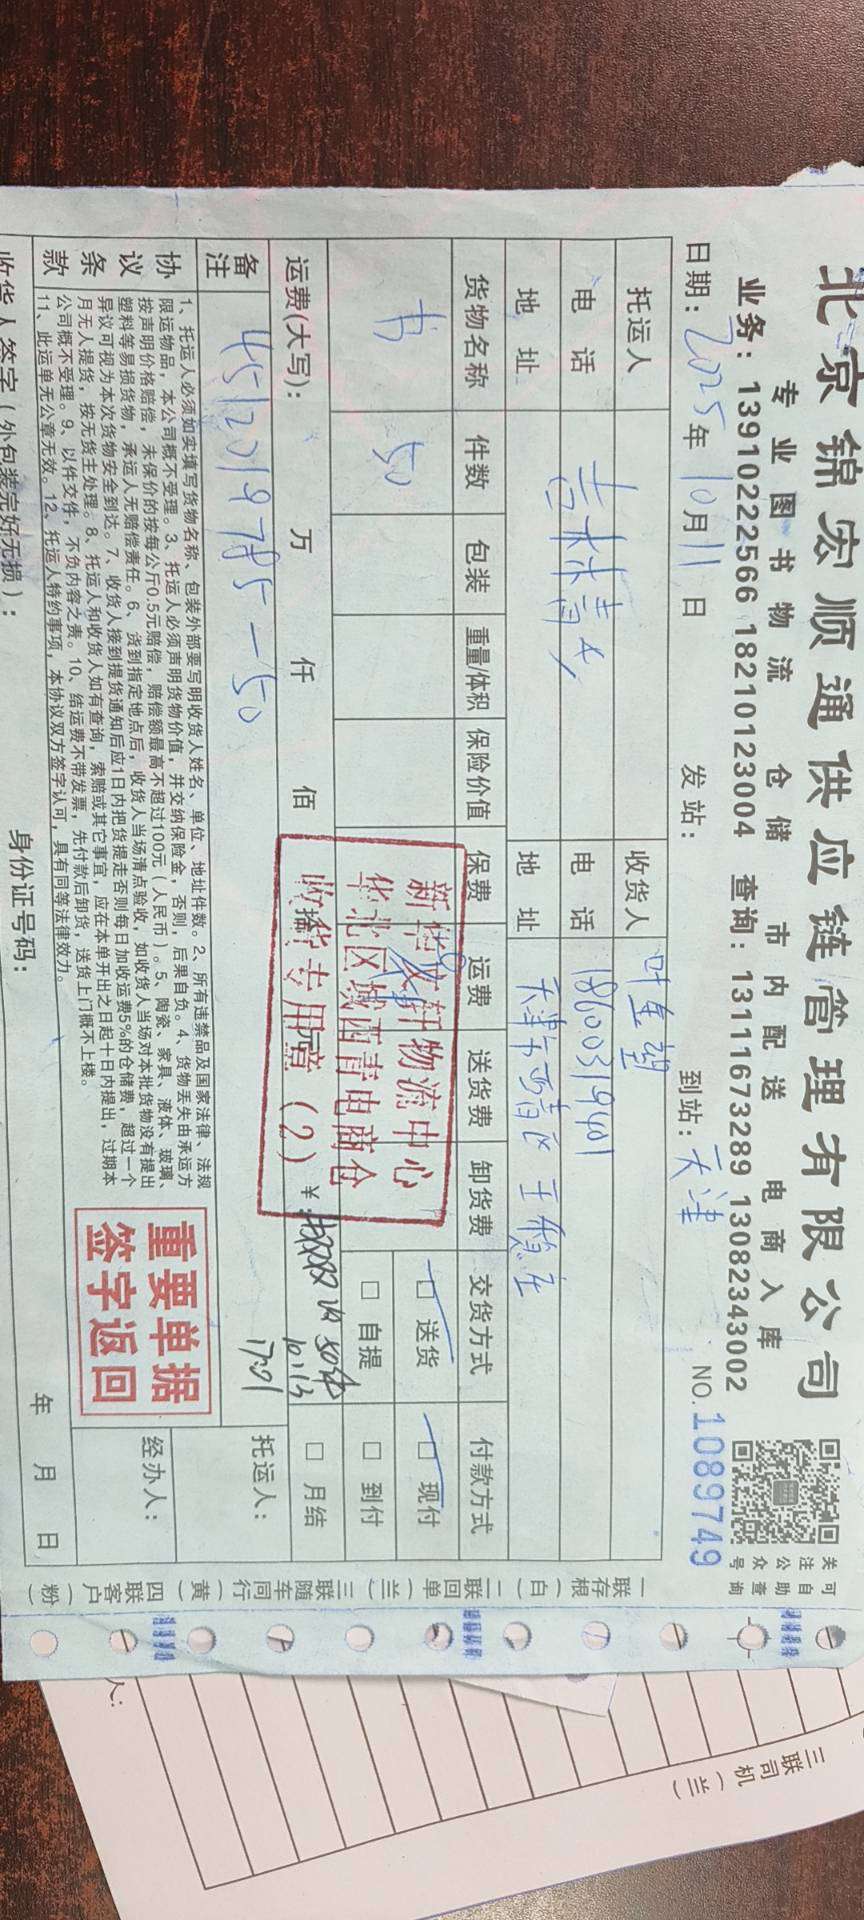 北京锦宏顺通供应链管理有限公司
专业图书物流 仓储 市内配送 电商入库
业务: 13910222566 18210123004 查询: 13111673289 13082343002
可自助查询
关注公众号
日期: 2025年10月11日 发站: 到站: 天津 NO.1089749
托运人 吉林青少 收货人
电话 电话 18600319401
地址 地址 天津市西青区 王稳庄
货物名称 件数 包装 重量/体积 保险价值 保费 运费 送货费 卸货费 交货方式 付款方式
书 50 □ 送货 □ 现付
□ 自提 □ 到付
□ 月结
新华文轩物流中心
华北区域西青电商仓
收货专用章(2)
运费(大写): 万 仟 佰 拾 元 ¥:
10.13
17:01
备注 4512019785-50
托运人:
经办人:
重要单据
签字返回
协议条款
1、托运人必须如实填写货物名称、包装外部要写明收货人姓名、单位、地址件数。2、所有违禁品及国家法律、法规
限运物品,本公司概不受理。3、托运人必须声明货物价值,并交纳保险金,否则,后果自负。4、货物丢失由承运方
按声明价格赔偿,未保价的按每公斤0.5元赔偿,赔偿额最高不超过100元(人民币)。5、陶瓷、家具、液体、玻璃、
塑料等易损货物,承运人无赔偿责任。6、货到指定地点后,收货人当场清点验收,如收货人当场对本批货物没有提出
异议可视为本次货物安全到达。7、收货人接到提货通知后应1日内把货提走否则每日加收运费5%的仓储费,超过一个
月无人提货,按无货主处理。8、托运人和收货人如有查询,索赔或其它事宜,应在本单开出之日起十日内提出,过期本
公司概不受理。9、以件交件,不负内容之责。10、结运费不带发票,先付款后卸货,送货上门概不上楼。
11、此运单无公章无效。12、托运人特约事项,本协议双方签字认可,具有同等法律效力。
收货人签字(外包装完好无损): 身份证号码: 年 月 日
一联存根(白) 二联回单(兰) 三联随车同行(黄) 四联客户(粉)
三联司机(兰)
人: